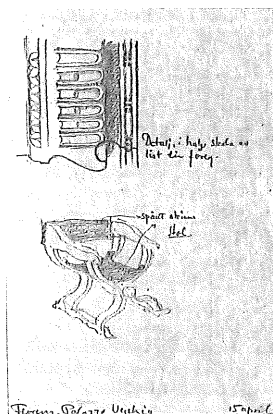 Detalj, i halv skala av
list
spänt skinn
Florens. Palazzo Vecchio 15 april